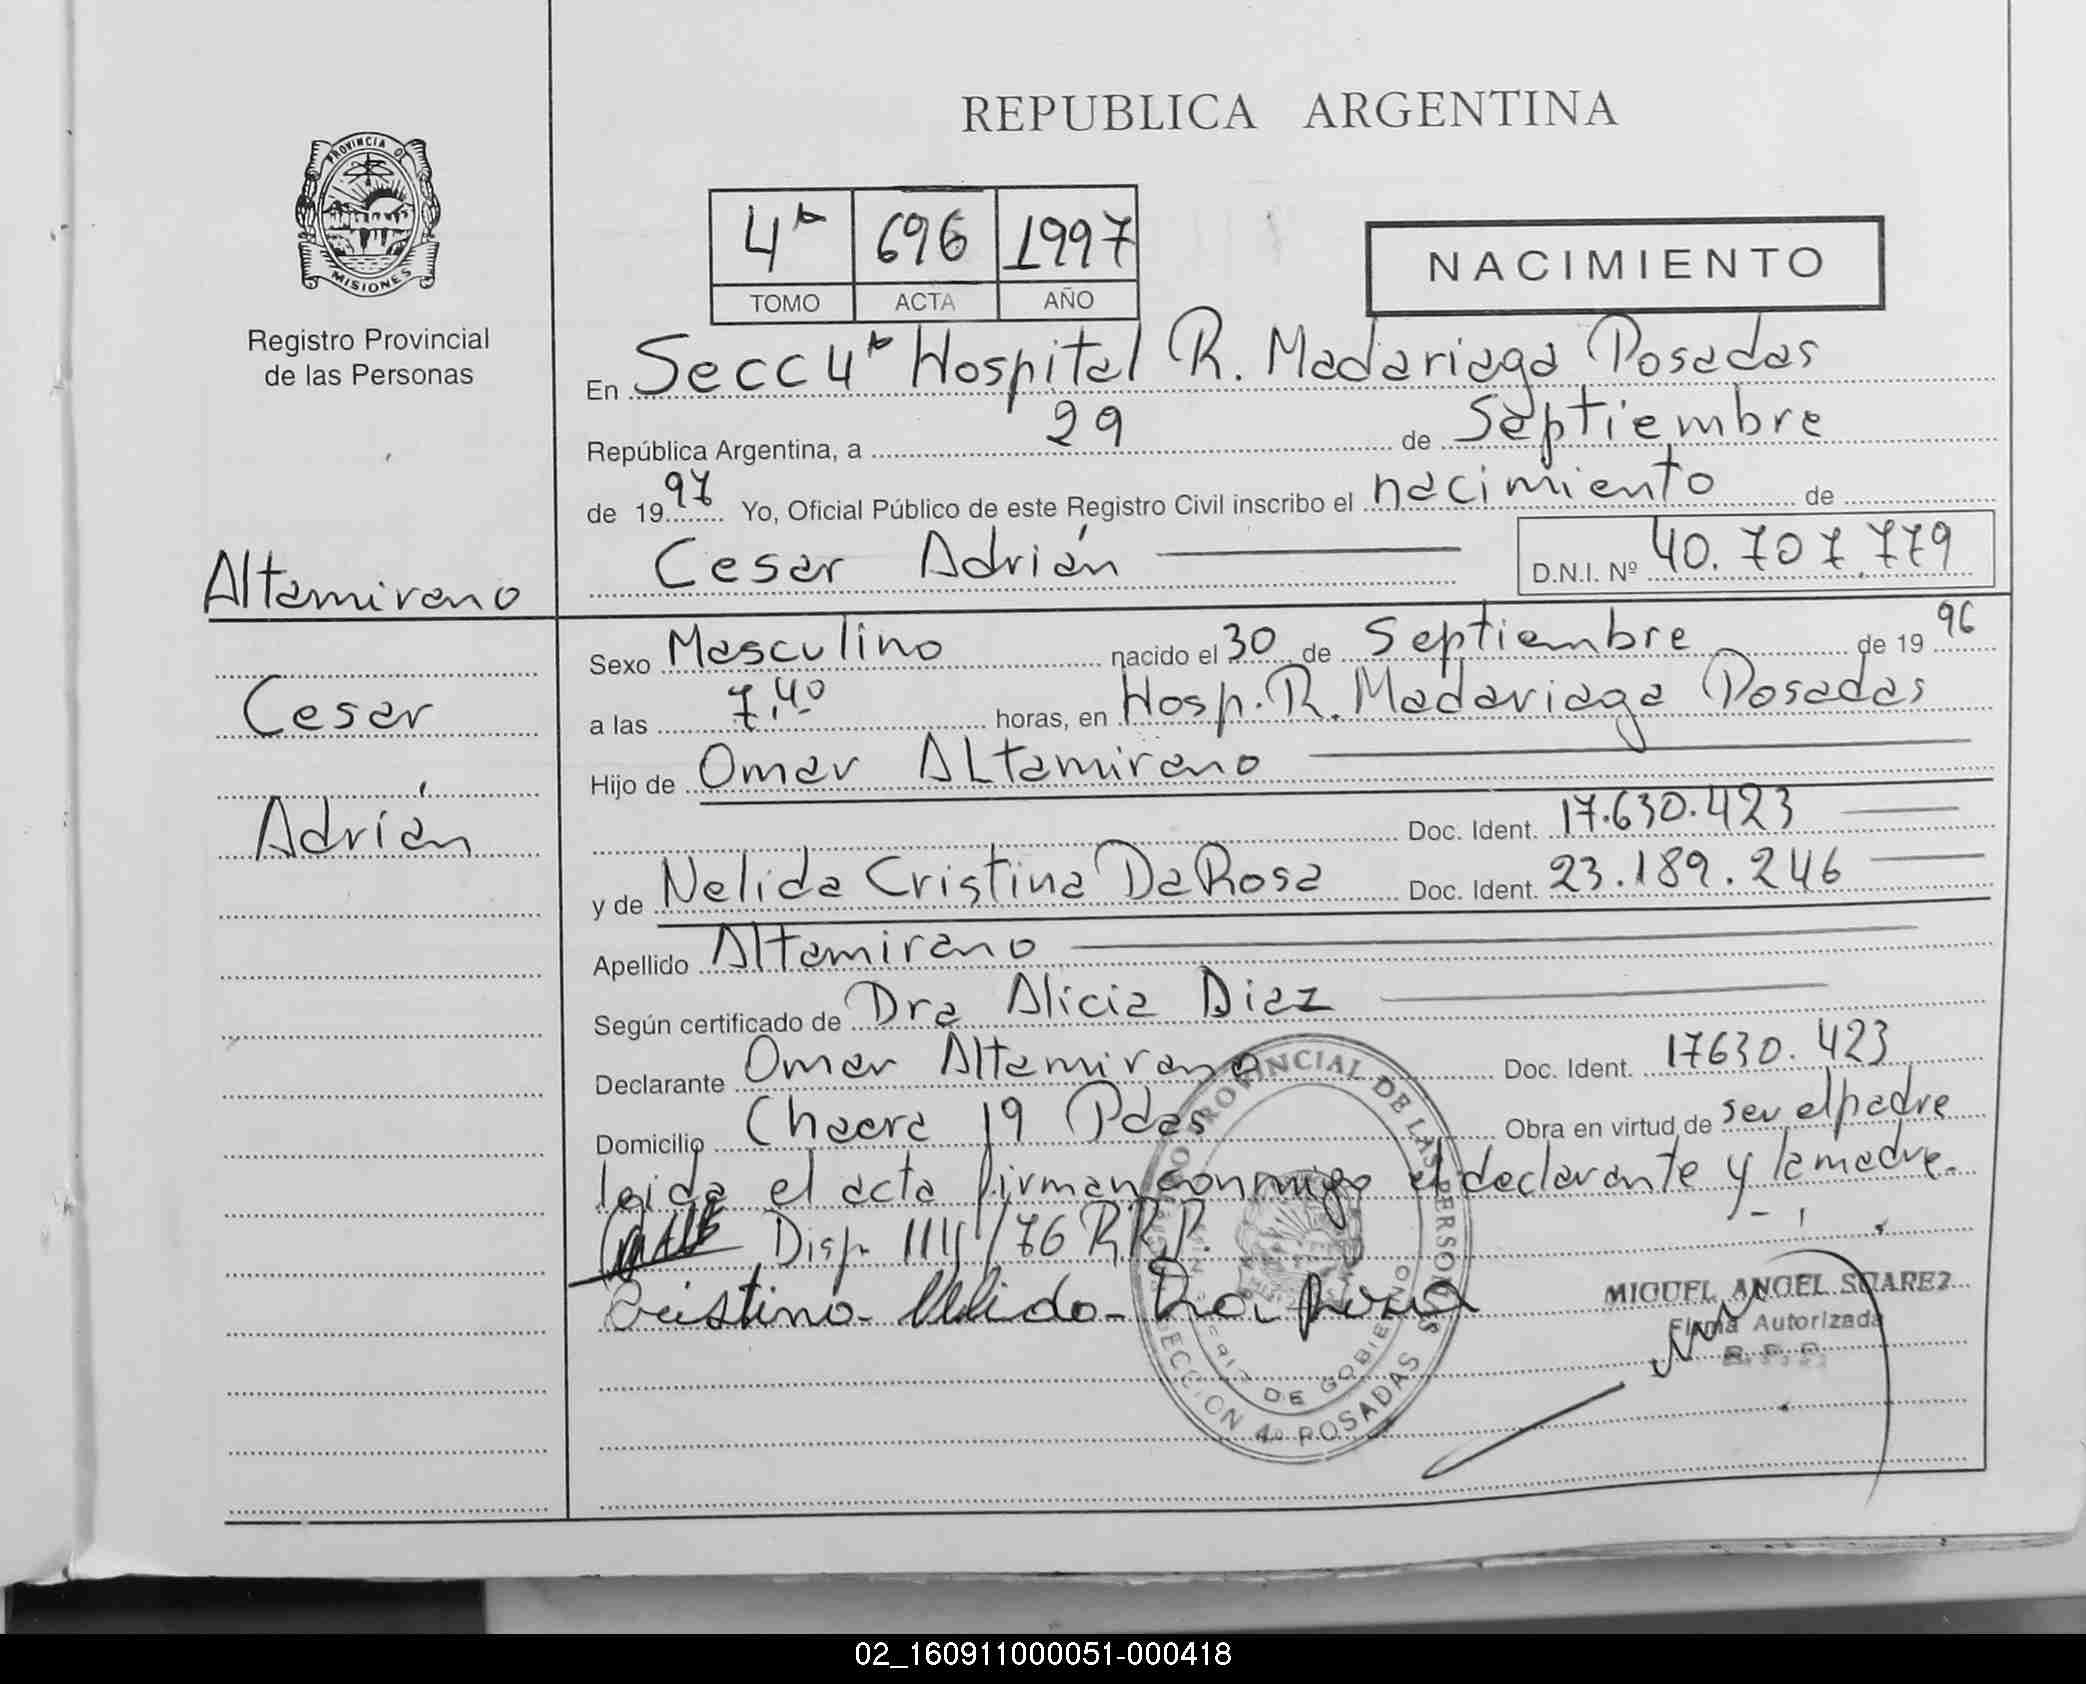 REPUBLICA ARGENTINA
PROVINCIA DE
MISIONES
Registro Provincial
de las Personas
4ª 696 1997
TOMO ACTA AÑO
NACIMIENTO
En Secc 4ª Hospital R. Madariaga Posadas
República Argentina, a 29 de Septiembre
de 1997 Yo, Oficial Público de este Registro Civil inscribo el nacimiento de
Cesar Adrián D.N.I. Nº 40.707.779
Altamirano
Cesar
Adrián
Sexo Masculino nacido el 30 de Septiembre de 1996
a las 7.40 horas, en Hosp. R. Madariaga Posadas
Hijo de Omar Altamirano
Doc. Ident. 17.630.423
y de Nelida Cristina DaRosa Doc. Ident. 23.189.246
Apellido Altamirano
Según certificado de Dra Alicia Diaz
Declarante Omar Altamirano Doc. Ident. 17630.423
Domicilio Chacra 19 Pdas Obra en virtud de ser el padre
leida el acta firman conmigo el declarante y la madre.
Disp. 1111/76 R.R.P.
Cristina Nelida Da Rosa
MIGUEL ANGEL SUAREZ
Firma Autorizada
PROVINCIAL DE LAS PERSONAS
DE GOBIERNO
SECCION 4ª POSADAS
02_160911000051-000418